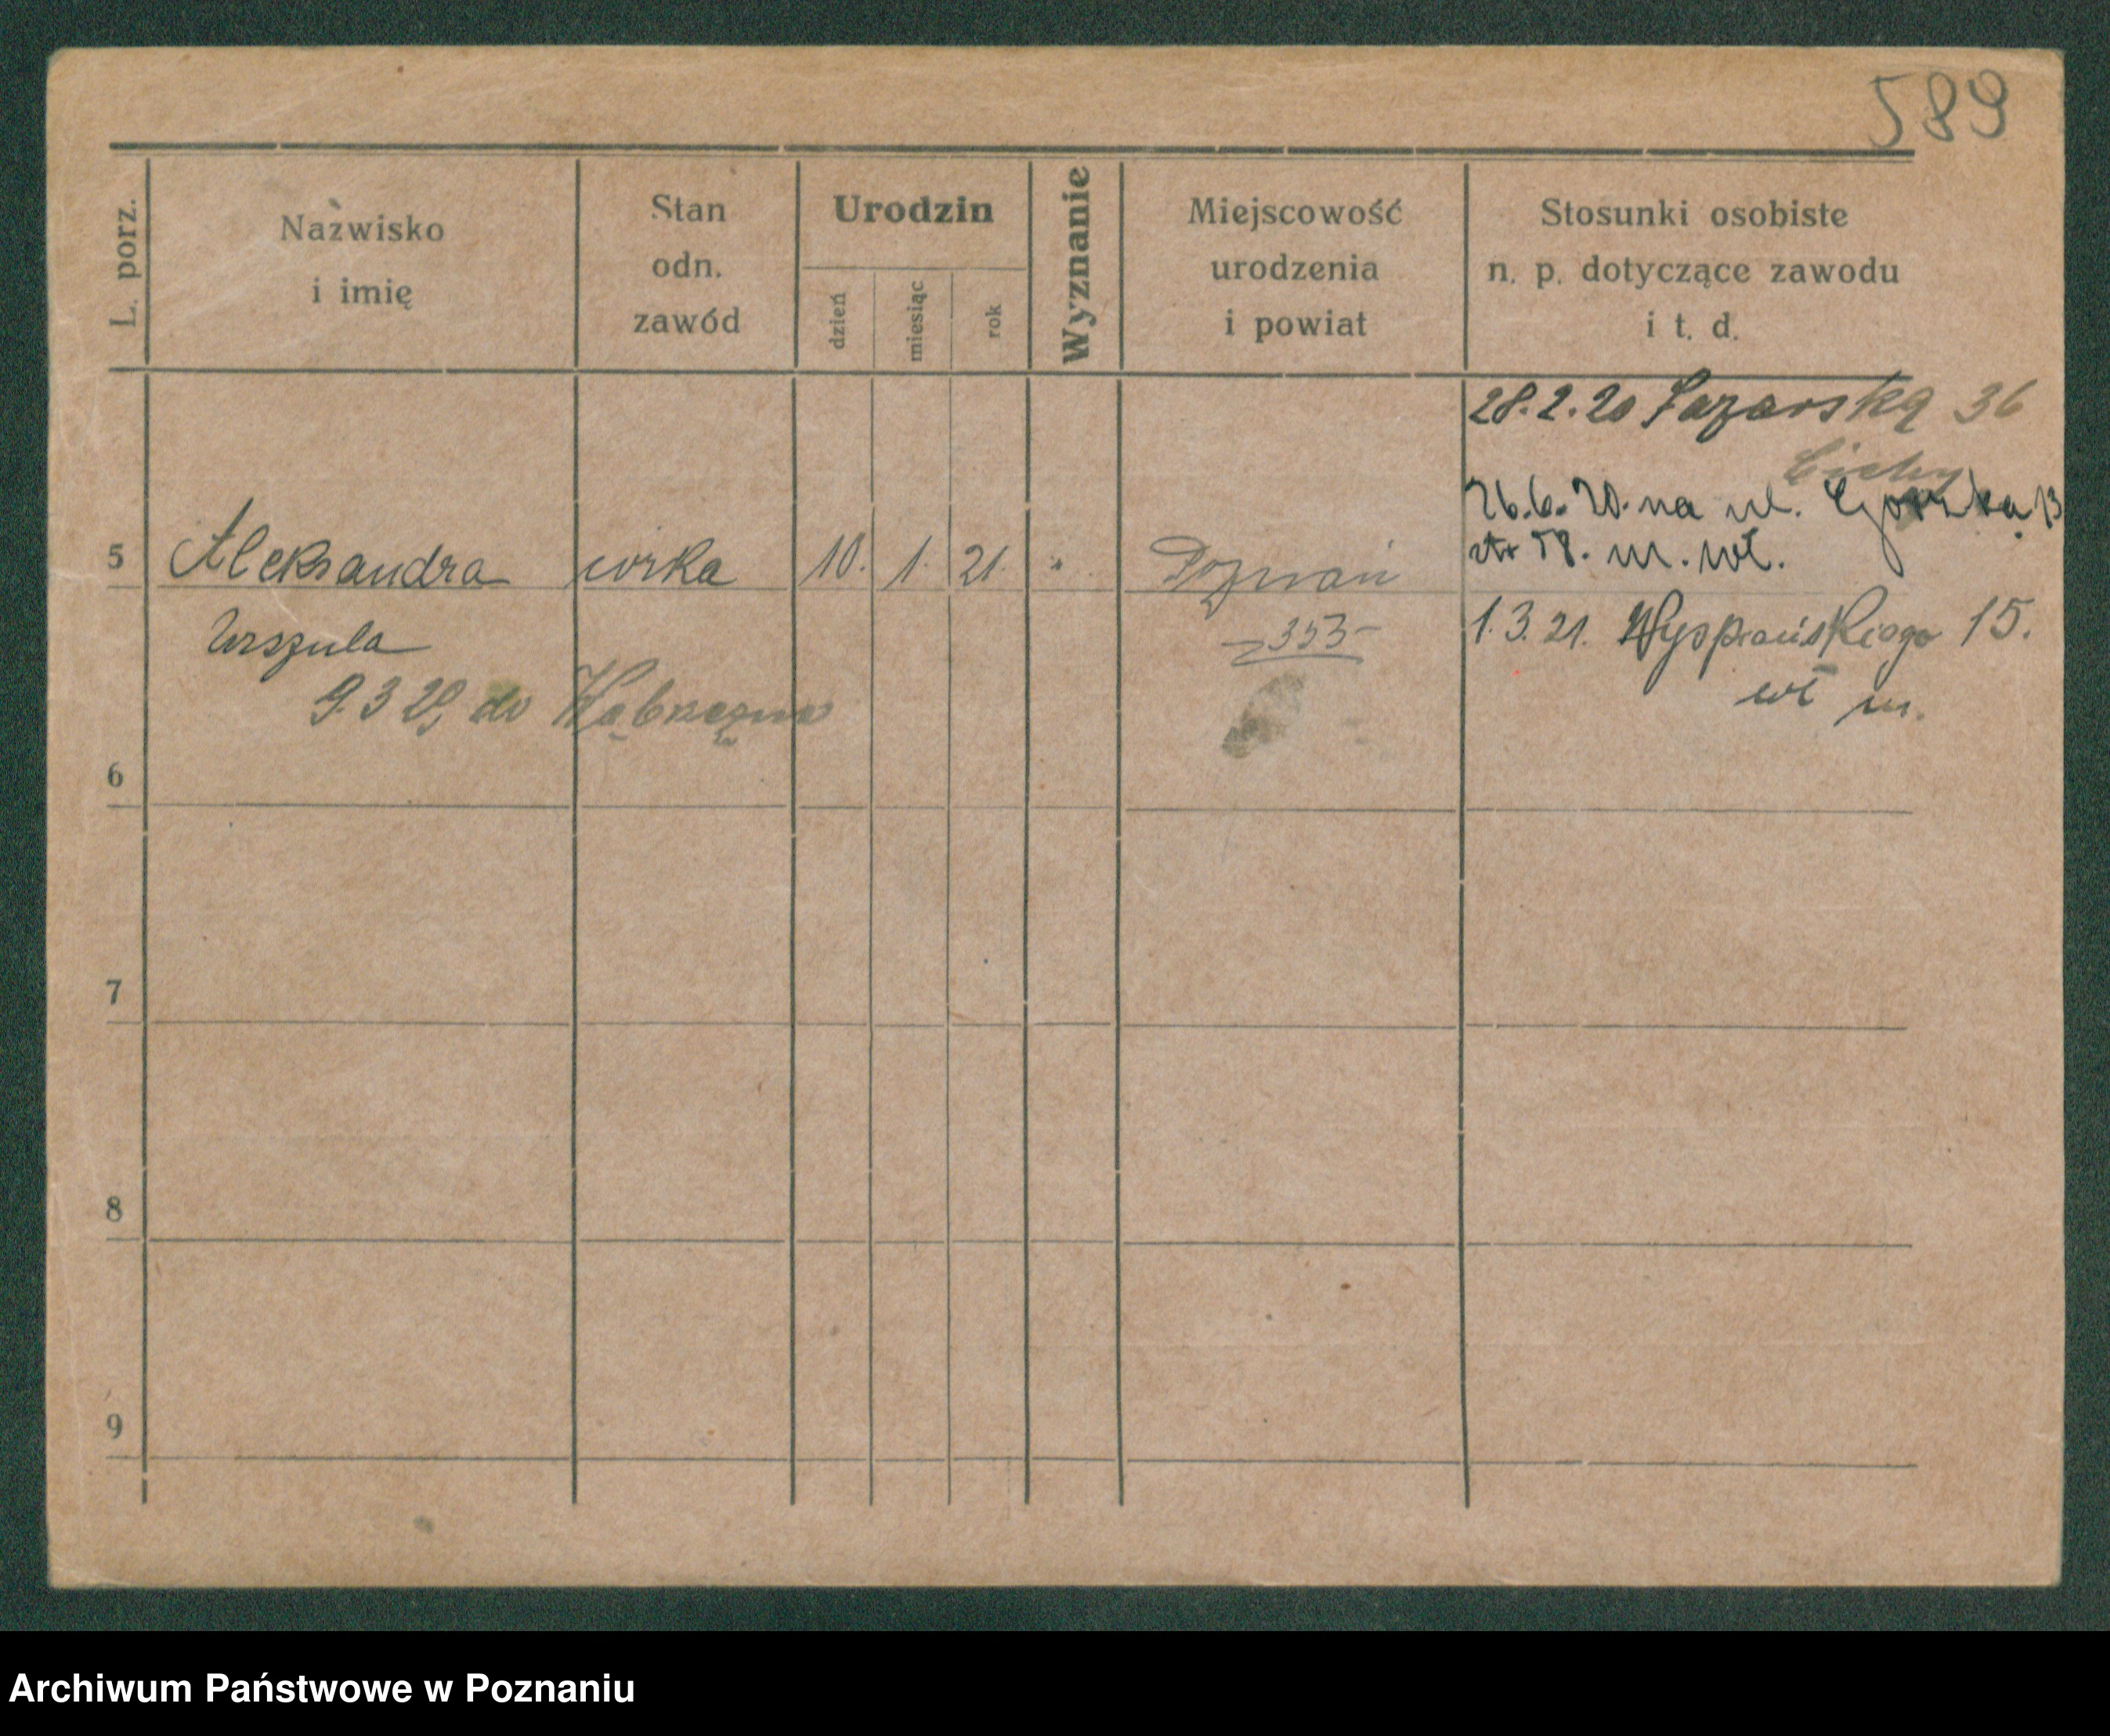 589
L. porz.
Nazwisko
i imię
Stan
odn.
zawód
Urodzin
dzień
miesiąc
rok
Wyznanie
Miejscowość
urodzenia
i powiat
Stosunki osobiste
n. p. dotyczące zawodu
i t. d.
28.2.20 Łazarska 36
Cichy
26.6.20. na ul. 13
m. wł.
5 Aleksandra córka 10. 1. 21. " Poznań
Urszula
353
1.3.21. Wyspiańskiego 15.
wł m.
9.3 29, do Wąbrzeźna
6
7
8
9
Archiwum Państwowe w Poznaniu